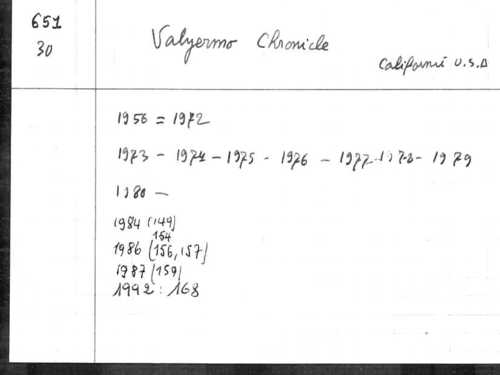 651
30
Valyermo Chronicle
California U.S.A
1956 = 1972
1973 - 1974 - 1975 - 1976 - 1977-1978- 1979
1980 -
1984 (149)
154
1986 [156, 157]
1987 (159)
1992 : 168